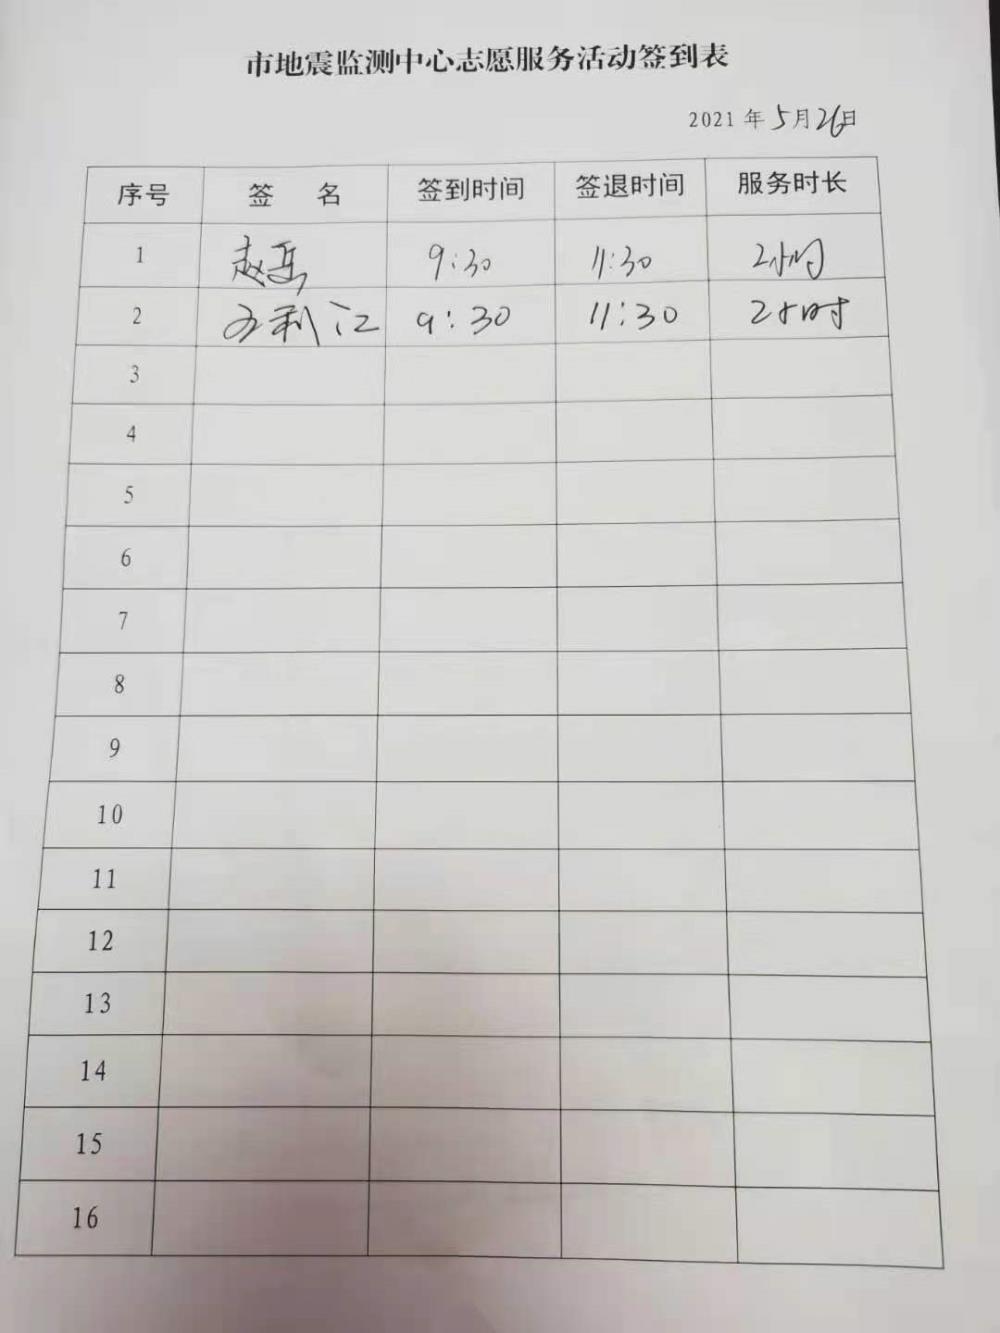 市地震监测中心志愿服务活动签到表
2021 年 5 月 26 日
序号 签 名 签到时间 签退时间 服务时长
1 赵 9:30 11:30 2小时
2 利江 9:30 11:30 2小时
3
4
5
6
7
8
9
10
11
12
13
14
15
16